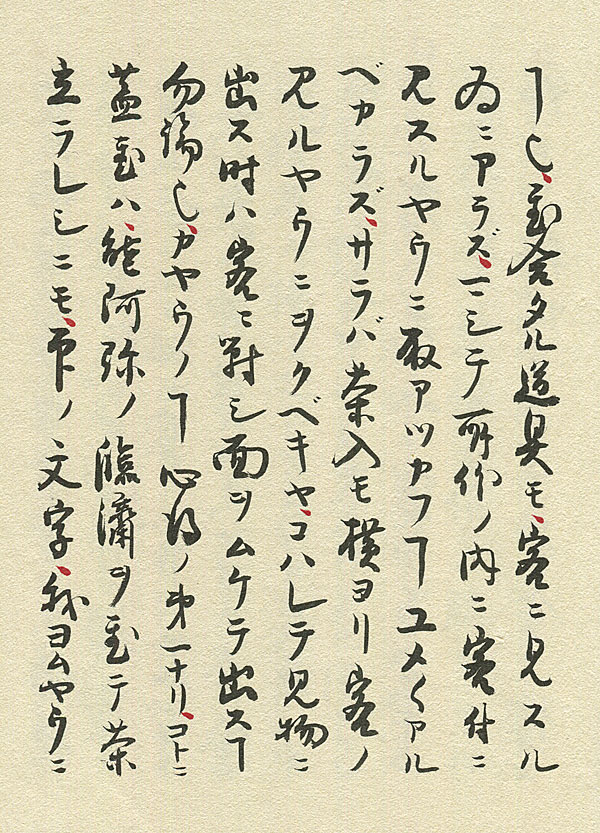 ヿ也、置合タル道具モ、客ニ見スル
為ニアラズ、マシテ所作ノ内ニ客付ニ
見スルヤウニ取アツカフヿユメ〱アル
ベカラズ、サラバ茶入モ横ヨリ客ノ
見ルヤウニヲクベキヤ、コハレテ見物ニ
出ス時ハ客ニ対シ面ヲムケテ出スヿ
勿論也、カヤウノヿ心得ノ第一ナリ、コトニ
蓋置ハ、能阿弥ノ臨済ヲ置テ茶
立ラレシニモ、印ノ文字、我ヨムヤウニ